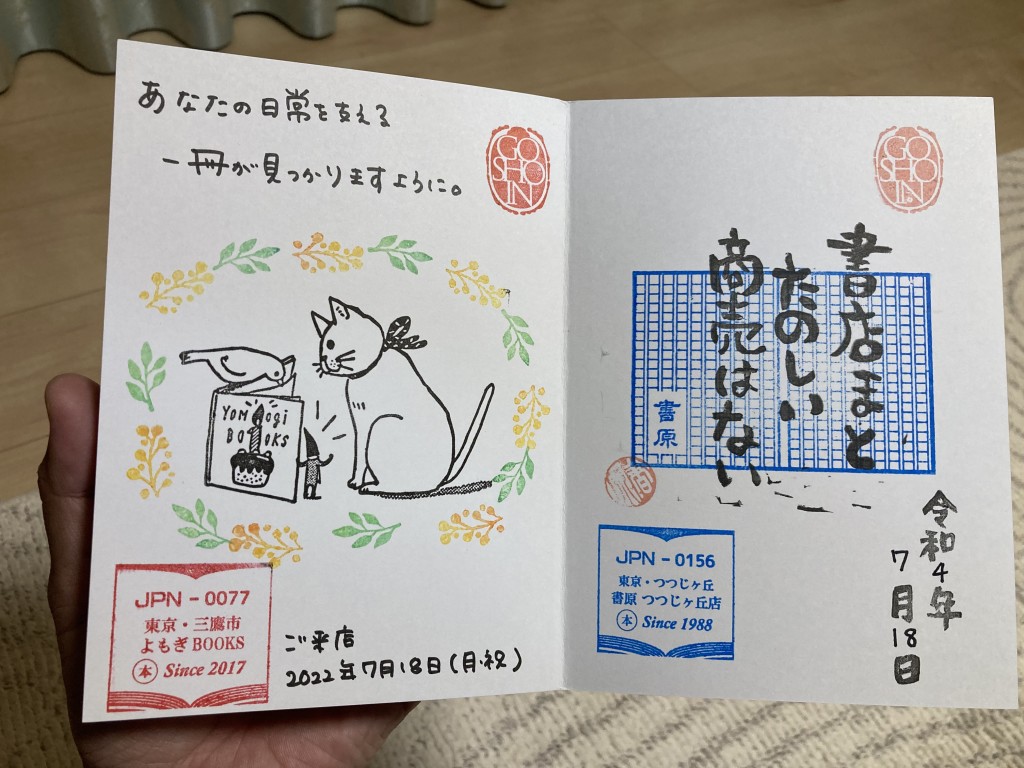 あなたの日常を支える
一冊が見つかりますように。
GO
SHO
IN
YOMOGI
BOOKS
JPN-0077
東京・三鷹市
よもぎBOOKS
本 Since 2017
ご来店
2022年7月18日(月・祝)
GO
SHO
IN
書店ほど
たのしい
商売はない
書原
JPN-0156
東京・つつじヶ丘
書原 つつじヶ丘店
本 Since 1988
令和4年
7月18日